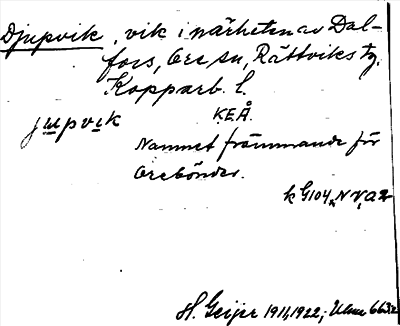 Djupvik, vik i närheten av Dal-
fors, Ore sn, Rättviks tg.
Kopparb. l.
jupvik KEÅ.
Namnet främmande för
Orebönder.
k G104, N V, a 2
H. Geijer 1911, 1922; Ulma 663:2